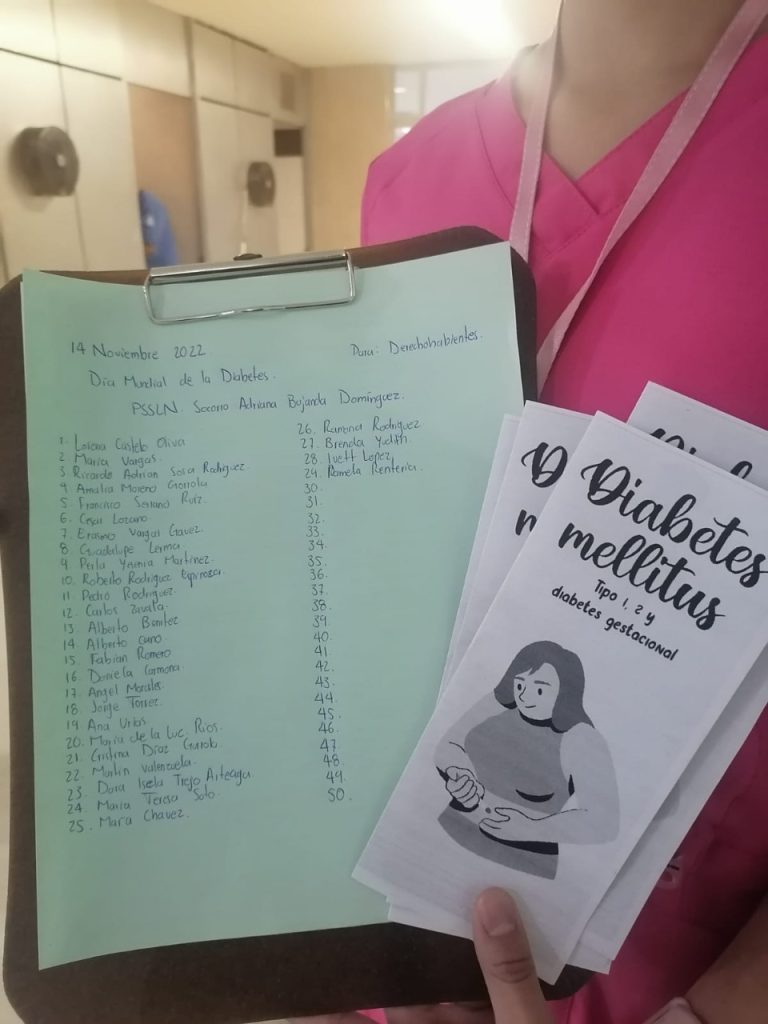 14 Noviembre 2022
Para: Derechohabientes.
Día Mundial de la Diabetes.
PSSLN Socorro Adriana Bujanda Domínguez.
1. Lorena Castelo Oliva
2. María Vargas.
3. Ricardo Adrian Sosa Rodriguez.
4. Amalia Moreno
5. Francisco Serrano Ruíz.
6. Cesar Lozano
7. Erasmo Vargas
8. Guadalupe Lerma.
9. Perla Yesenia Martinez.
10. Roberto Rodriguez Espinoza.
11. Pedro Rodriguez
12. Carlos Zavala.
13. Alberto Benitez
14. Alberto Cano
15. Fabian Romero
16. Daniela Carmona
17. Angel Morales.
18. Jorge Torrez.
19. Ana Urias.
20. María de la Luz Rios.
21. Cristina Díaz
22. Martin Valenzuela.
23. Dora Isela Trejo Arteaga.
24. María Teresa Soto.
25. Mara Chavez.
26. Ramona Rodriguez
27. Brenda Yudith.
28. Ivett Lopez
29. Pamela Renteria.
30.
31.
32.
33.
34.
35.
36.
37.
38.
39.
40.
41.
42.
43.
44.
45.
46.
47.
48.
49.
50.
Diabetes
mellitus
Tipo 1, 2 y
diabetes gestacional